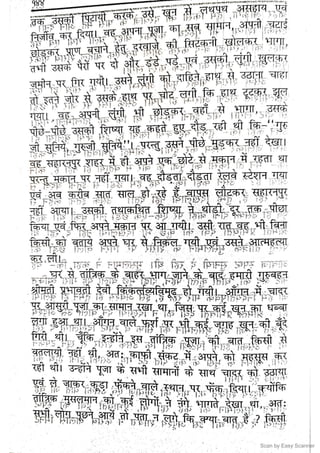 १४४
तक उसकी पिटायी करके उसे खून से लथपथ असहाय एवं
निर्जीव कर दिया। वह अपना पूजा का सब सामान, अपनी चटाई
छोड़कर प्राण बचाने हेतु दरवाजे की सिटकनी खोलकर भागा,
तभी उसके पैरों पर दो और डंडे पड़े एवं उसकी लुंगी खुलकर
जमीन पर गिर गयी। उसने लुंगी को दाहिने हाथ से उठाना चाहा
तो इतने जोर से उसके हाथ पर चोट लगी कि हाथ टूटकर झूल
गया। वह अपनी लुंगी भी छोड़कर वहाँ से भागा। उसके
पीछे-पीछे उसकी शिष्या यह कहते हुए दौड़ रही थी कि–"गुरु
जी सुनिये, गुरुजी सुनिये"। परन्तु उसने पीछे मुड़कर नहीं देखा।
वह सहारनपुर शहर में ही अपने एक छोटे से मकान में रहता था
परन्तु मकान पर नहीं गया। वह दौड़ता दौड़ता रेलवे स्टेशन गया
एवं अब करीब सात साल हो रहे हैं वापस लौटकर सहारनपुर
नहीं आया। उसकी तथाकथित शिष्या ने थोड़ी दूर तक पीछा
किया एवं फिर अपने मकान पर आ गयी। उसी रात वह भी बिना
किसी को बताये अपने घर से निकल गयी एवं उसने आत्महत्या
कर ली।
घर से तांत्रिक के बाहर भाग जाने के बाद हमारी गुरुबहन
श्रीमती प्रभावती देवी किंकर्तव्यविमूढ़ हो गयी। आँगन में चादर
पर आसरी पूजा का सामान रखा था जिस पर कई खून का धब्बा
लगा हुआ था। आँगन वाले फर्श पर भी कई जगह खून की बूँदें
गिरी थी। चूँकि इन्होंने इस तांत्रिक पूजा की बात किसी से
बतलायी नहीं थी, अतः काफी संकट में अपने को महसूस कर
रही थी। उन्होंने पूजा के सभी सामानों के साथ चादर को उठाया
एवं ले जाकर कूड़ा फेंकने वाले स्थान पर फेंक दिया। क्योंकि
तांत्रिक मुसलमान को कई लोगों ने नंगे भागते देखा था, अतः
सभी लोग पूछने आये तो पता न लगे कि क्या बात है ? किसी
Scan by Easy Scanner